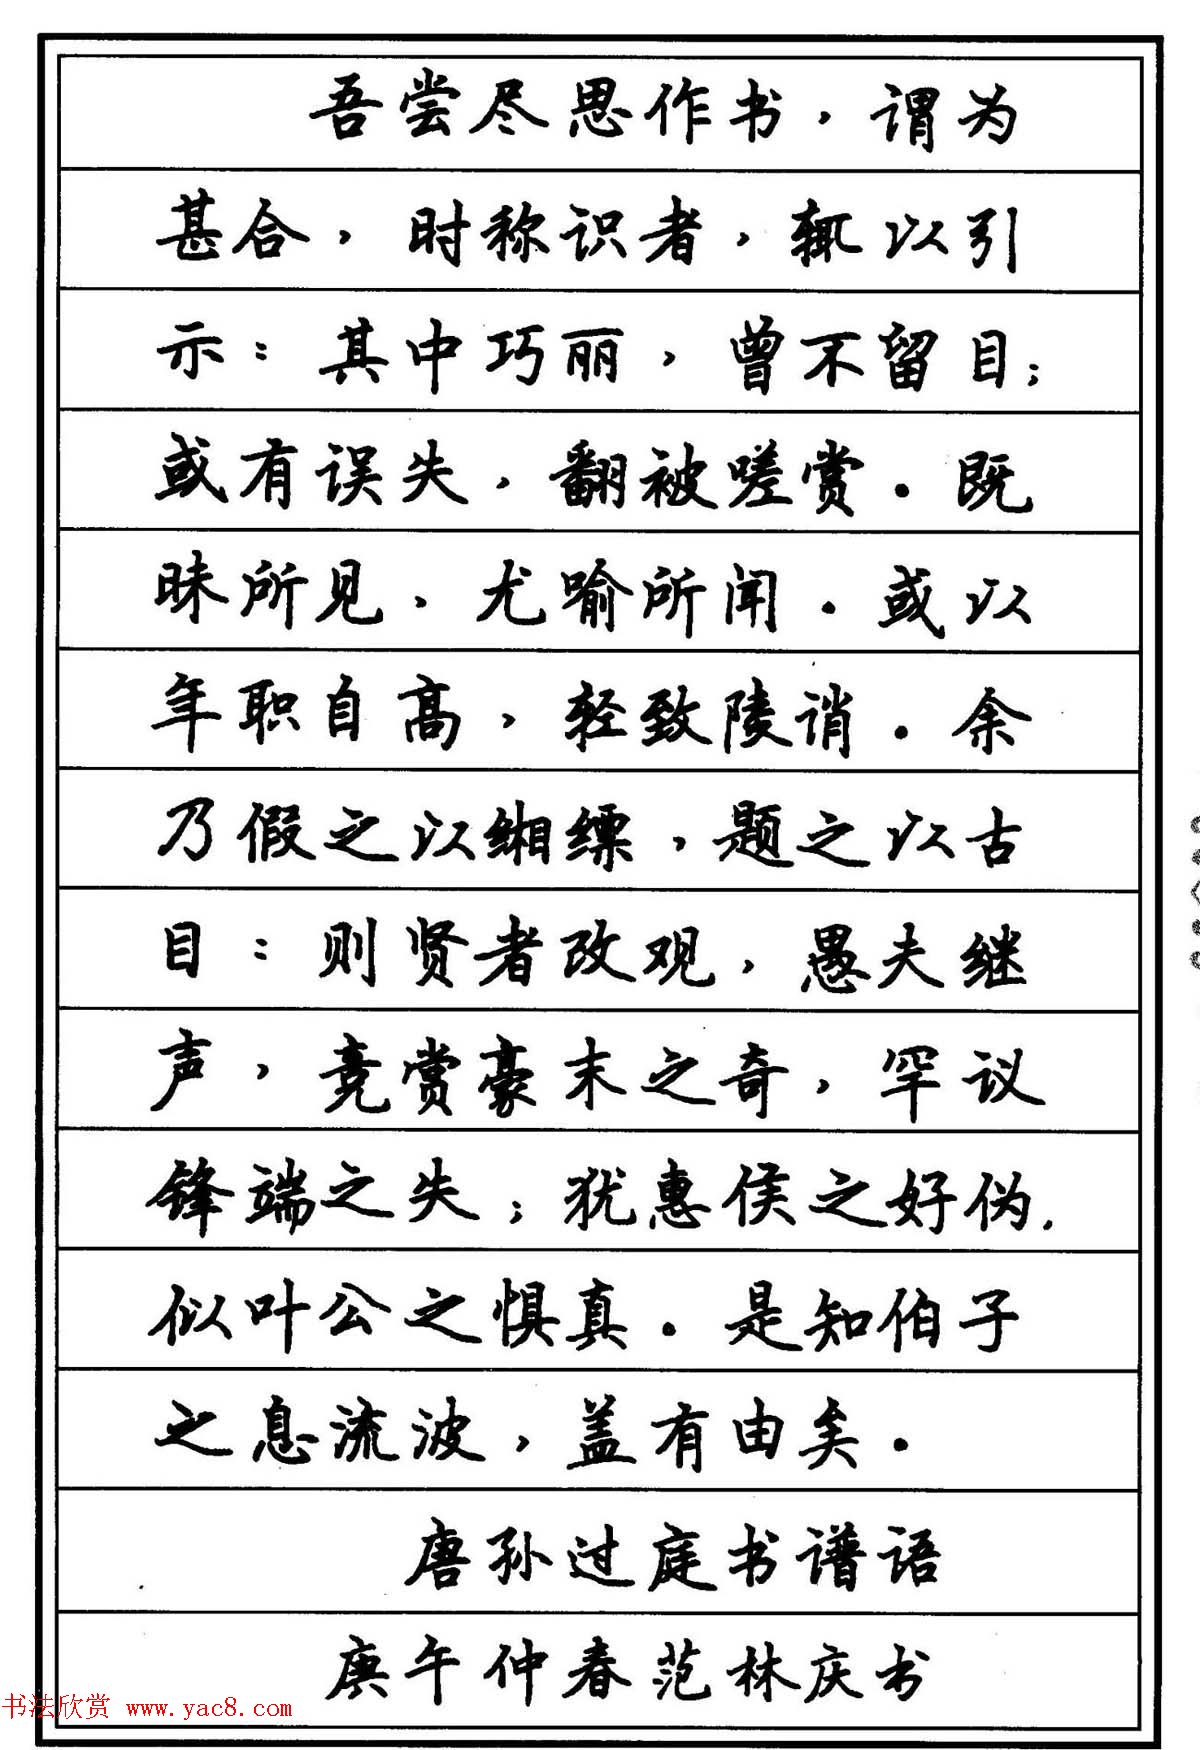 吾尝尽思作书，谓为
甚合，时称识者，辄以引
示：其中巧丽，曾不留目；
或有误失，翻被嗟赏。既
昧所见，尤喻所闻。或以
年职自高，轻致陵诮。余
乃假之以缃缥，题之以古
目：则贤者改观，愚夫继
声，竞赏豪末之奇，罕议
锋端之失；犹惠侯之好伪，
似叶公之惧真。是知伯子
之息流波，盖有由矣。
唐孙过庭书谱语
庚午仲春范林庆书
书法欣赏 www.yac8.com